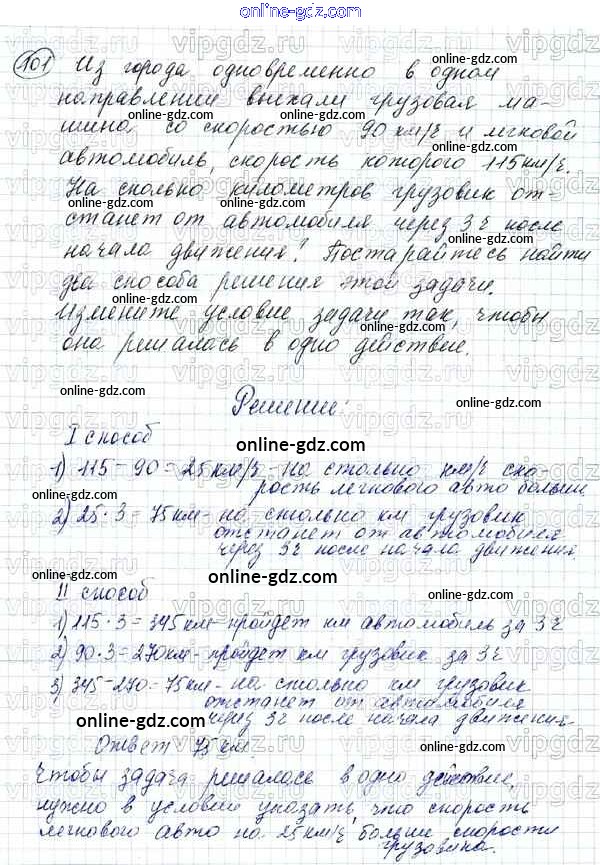 101 Из города одновременно в одном
направлении выехали грузовая ма-
шина со скоростью 90 км/ч и легковой
автомобиль, скорость которого 115 км/ч.
На сколько километров грузовик от-
станет от автомобиля через 3 ч после
начала движения? Постарайтесь найти
два способа решения этой задачи.
Измените условие задачи так, чтобы
она решалась в одно действие.
Решение:
I способ
1) 115 - 90 = 25 км/ч - на столько км/ч ско-
рость легкового авто больше
2) 25 · 3 = 75 км - на столько км грузовик
отстанет от автомобиля
через 3 ч после начала движения
II способ
1) 115 · 3 = 345 км - пройдет км автомобиль за 3 ч
2) 90 · 3 = 270 км - пройдет км грузовик за 3 ч
3) 345 - 270 = 75 км - на столько км грузовик
отстанет от автомобиля
через 3 ч после начала движения.
Ответ 75 км.
Чтобы задача решалась в одно действие,
нужно в условии указать, что скорость
легкового авто на 25 км/ч больше скорости
грузовика.
online-gdz.com
vipgdz.com